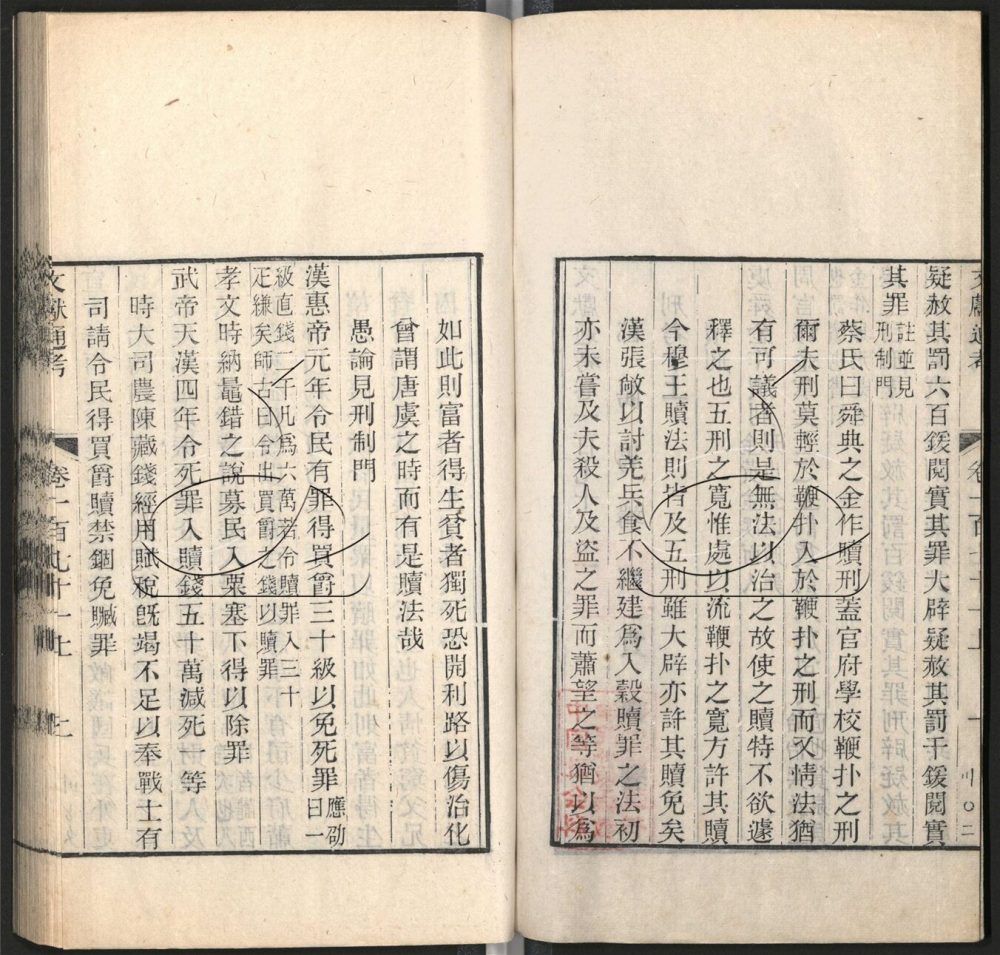 疑赦其罰六百鍰閱實其罪大辟疑赦其罰千鍰閱實
其罪註並見
刑制門
蔡氏曰舜典之金作贖刑蓋官府學校鞭扑之刑
爾夫刑莫輕於鞭扑入於鞭扑之刑而又情法猶
有可議者則是無法以治之故使之贖特不欲遽
釋之也五刑之寬惟處以流鞭扑之寬方許其贖
今穆王贖法則皆及五刑雖大辟亦許其贖免矣
漢張敞以討羌兵食不繼建為入穀贖罪之法初
亦未嘗及夫殺人及盜之罪而蕭望之等猶以為
如此則富者得生貧者獨死恐開利路以傷治化
曾謂唐虞之時而有是贖法哉
愚論見刑制門
漢惠帝元年令民有罪得買爵三十級以免死罪應劭
曰一
級直錢二千凡為六萬若令贖罪入三十
疋縑矣師古曰令出買爵之錢以贖罪
孝文時納鼂錯之說募民入粟塞下得以除罪
武帝天漢四年令死罪入贖錢五十萬減死一等
時大司農陳藏錢經用賦稅既竭不足以奉戰士有
司請令民得買爵贖禁錮免贓罪
文獻通考
卷一百七十一上